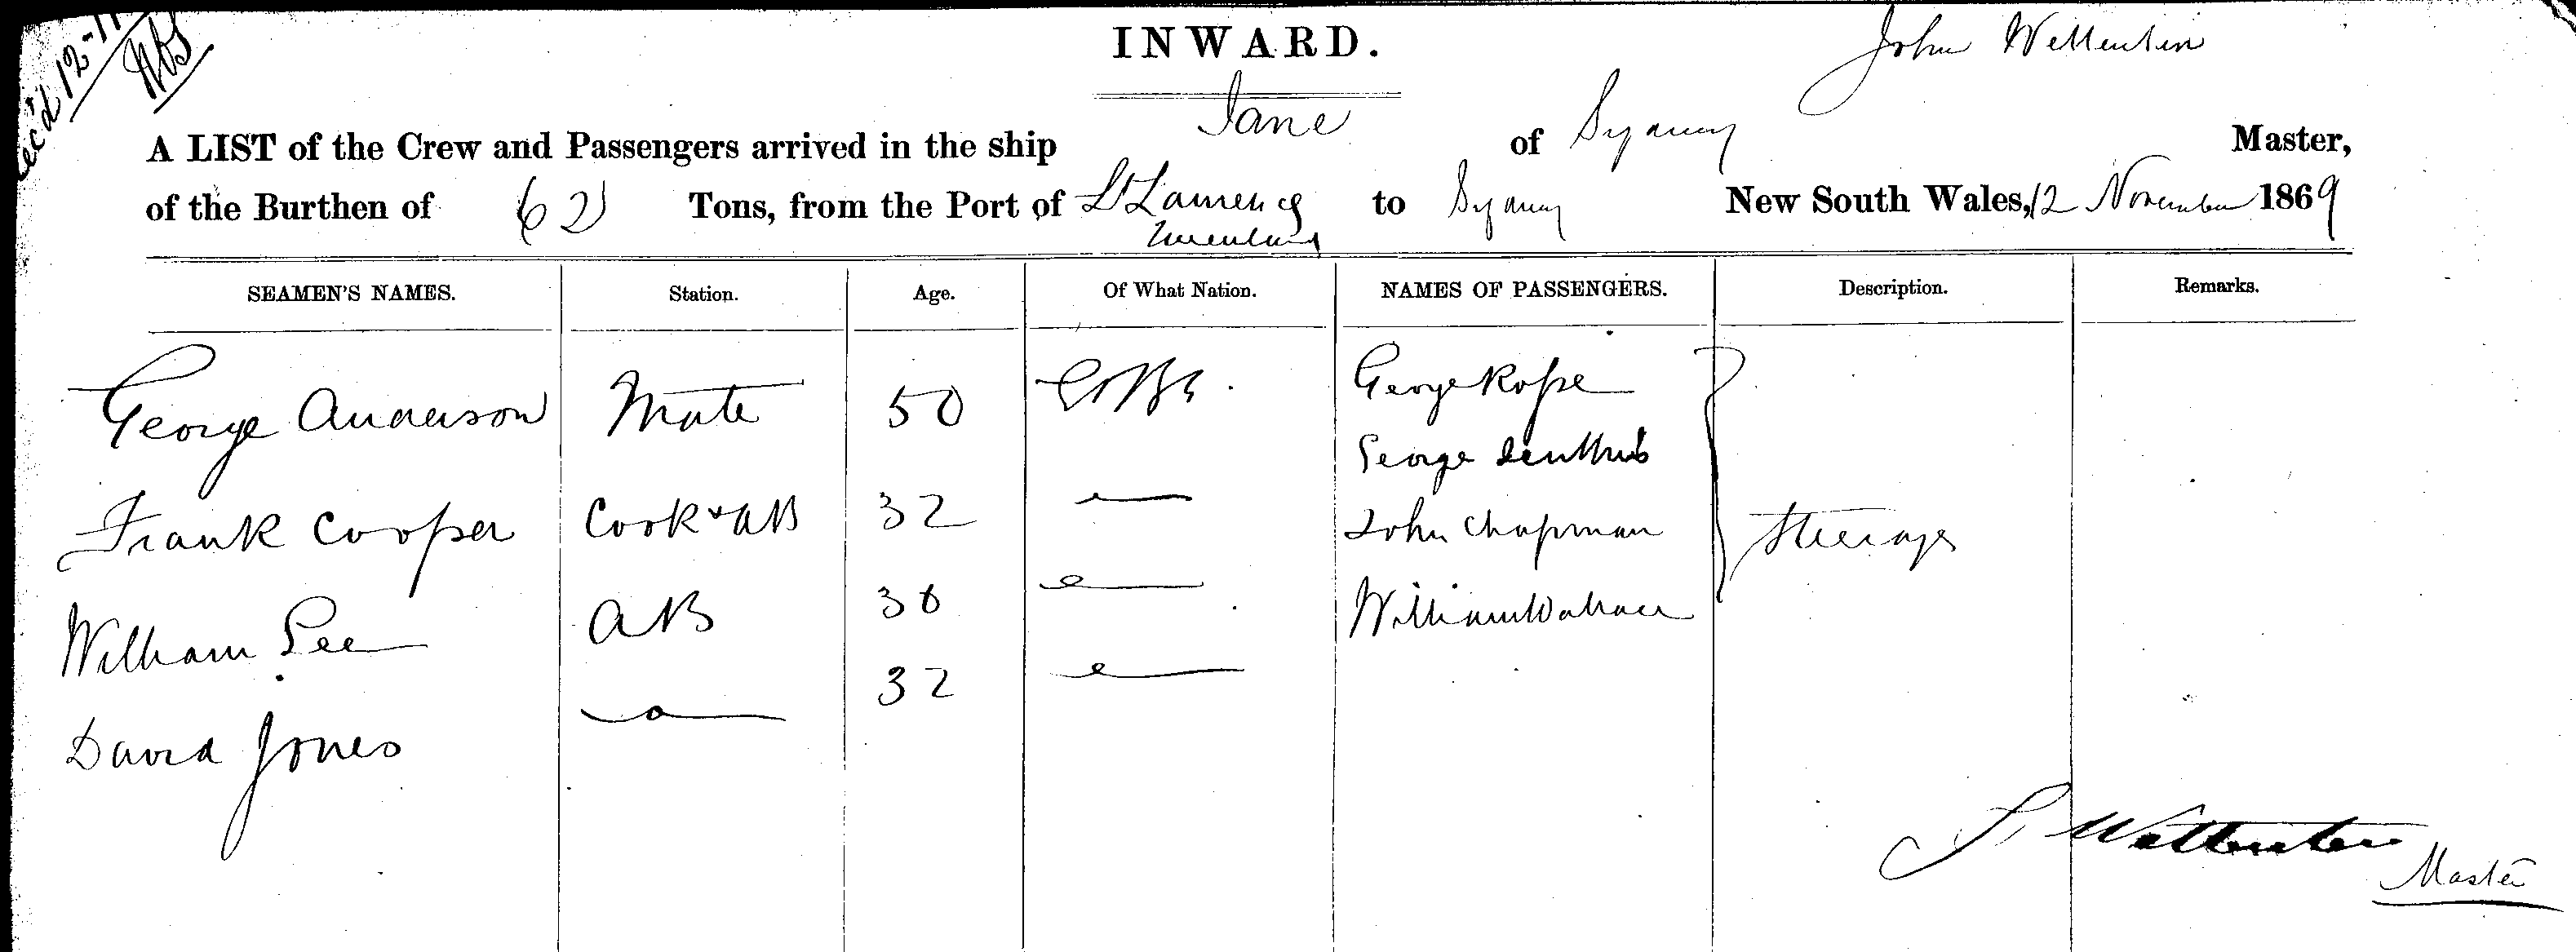 Rec'd 12-11
INWARD.
John Wettenten
A LIST of the Crew and Passengers arrived in the ship Jane of Sydney Master,
of the Burthen of 62 Tons, from the Port of St Lawrence to Sydney New South Wales, 12 November 1869
Queensland
SEAMEN'S NAMES. Station. Age. Of What Nation. NAMES OF PASSENGERS. Description. Remarks.
George Anderson Mate 50 Gt Bn. George Rope
George
Frank Cooper Cook & AB 32 John Chapman Steerage
William Lee AB 36 William Wallace
David Jones 32
J. Wettenten
Master